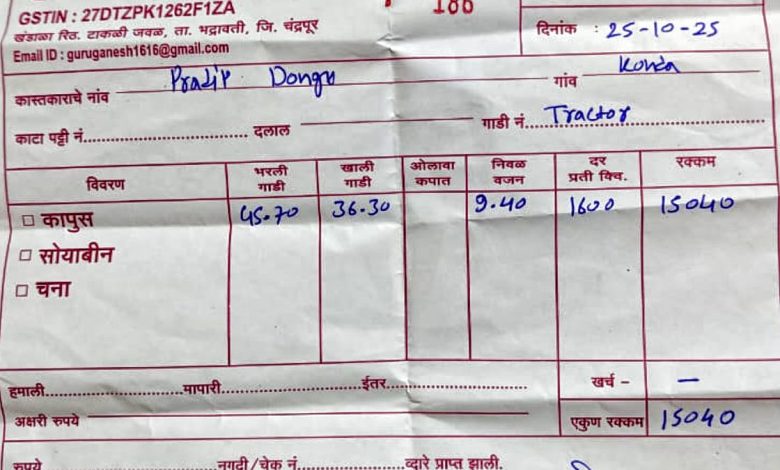 GSTIN : 27DTZPK1262F1ZA
188
दिनांक : 25-10-25
खंडाळा रिठ. टाकळी जवळ, ता. भद्रावती, जि. चंद्रपूर
Email ID : guruganesh1616@gmail.com
कास्तकाराचे नांव Pradip Dongu गांव Konda
काटा पट्टी नं. दलाल गाडी नं. Tractor
विवरण भरली गाडी खाली गाडी ओलावा कपात निवळ वजन दर प्रती क्वि. रक्कम
कापुस 45.70 36.30 9.40 1600 15040
सोयाबीन
चना
हमाली मापारी ईतर खर्च - —
अक्षरी रुपये एकुण रक्कम 15040
रुपये नगदी/चेक नं. व्दारे प्राप्त झाली.